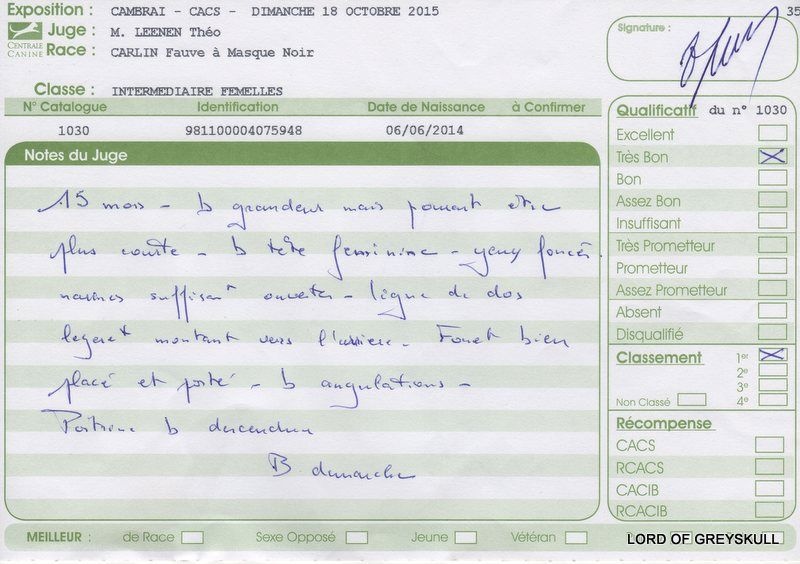 Exposition : CAMBRAI - CACS - DIMANCHE 18 OCTOBRE 2015
35
CENTRALE CANINE
Juge : M. LEENEN Théo
Race : CARLIN Fauve à Masque Noir
Signature :
Classe : INTERMEDIAIRE FEMELLES
N° Catalogue Identification Date de Naissance à Confirmer
1030 981100004075948 06/06/2014
Notes du Juge
15 mois - b grandeur mais pouvant etre
plus courte - b tête feminine - yeux foncés.
narines suffisant ouvertes - ligne de dos
legeret montant vers l'arriere. Fouet bien
placé et porté - b angulations -
Poitrine b descendue
B demarche
Qualificatif du n° 1030
Excellent
Très Bon
Bon
Assez Bon
Insuffisant
Très Prometteur
Prometteur
Assez Prometteur
Absent
Disqualifié
Classement 1er
2e
3e
Non Classé 4e
Récompense
CACS
RCACS
CACIB
RCACIB
MEILLEUR : de Race Sexe Opposé Jeune Vétéran
LORD OF GREYSKULL